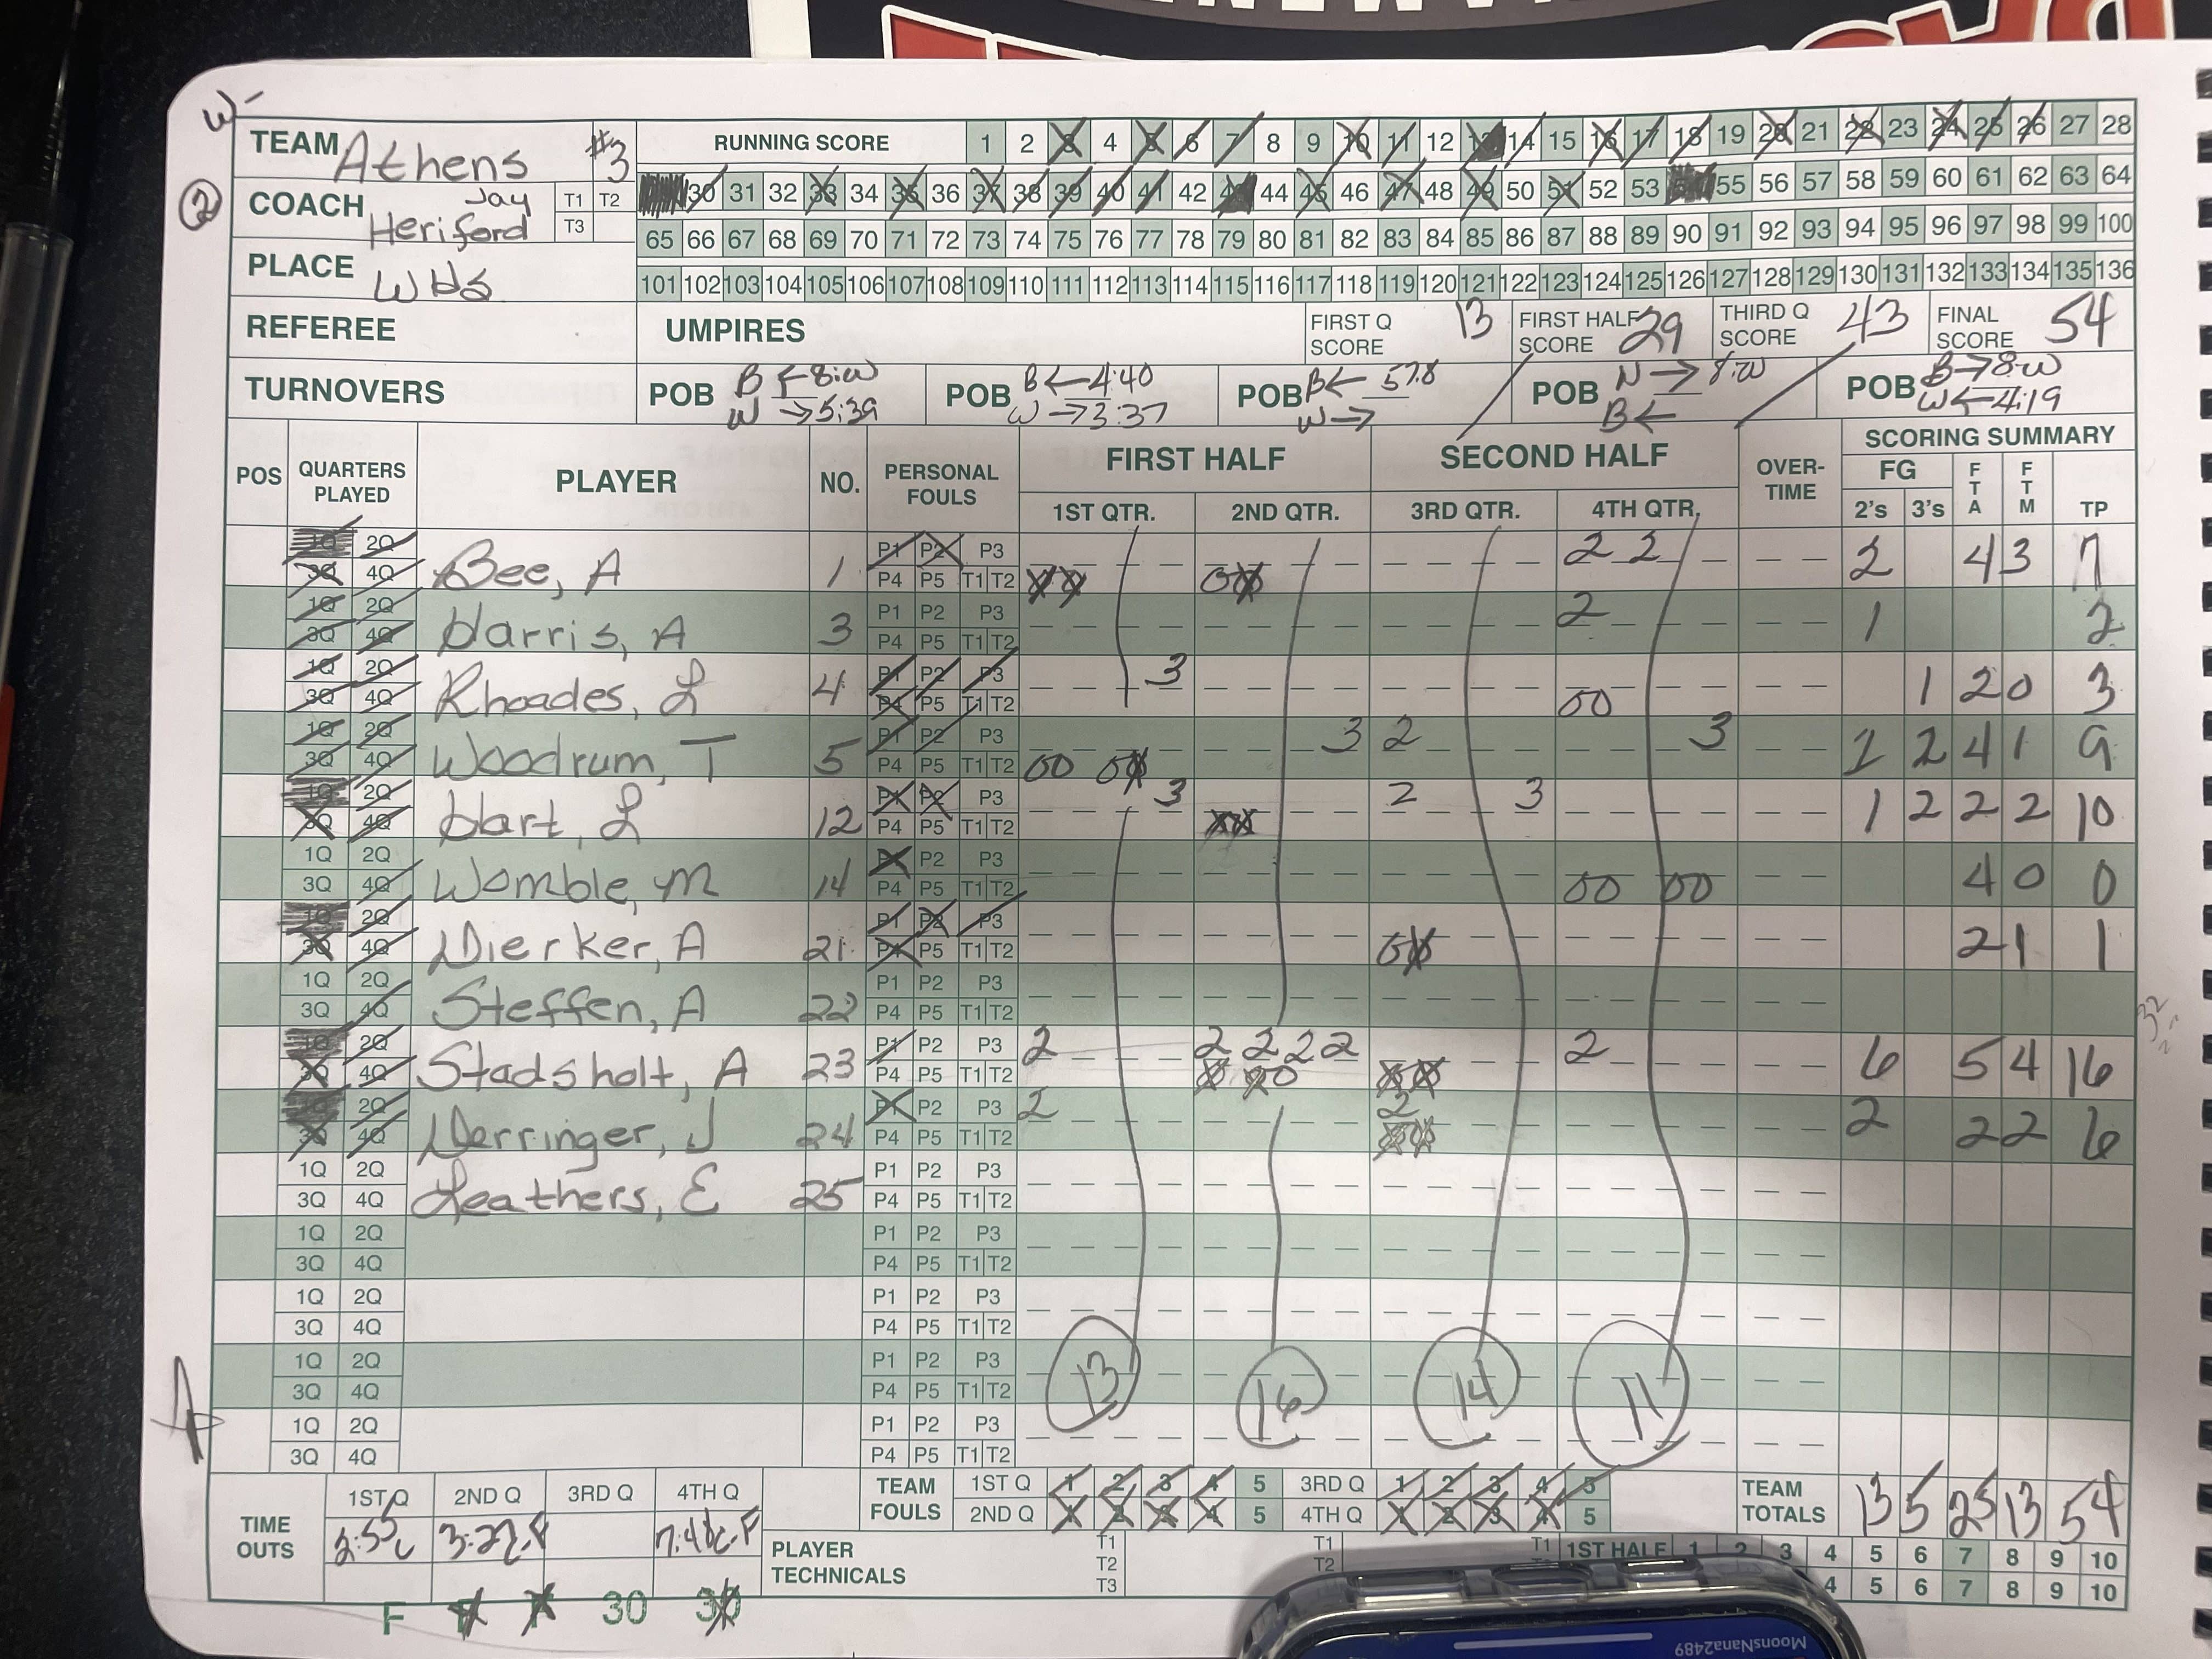 W-
TEAM Athens #3
RUNNING SCORE 1 2 3 4 5 6 7 8 9 10 11 12 13 14 15 16 17 18 19 20 21 22 23 24 25 26 27 28
COACH Jay Heriford T1 T2 T3
30 31 32 33 34 35 36 37 38 39 40 41 42 43 44 45 46 47 48 49 50 51 52 53 54 55 56 57 58 59 60 61 62 63 64
65 66 67 68 69 70 71 72 73 74 75 76 77 78 79 80 81 82 83 84 85 86 87 88 89 90 91 92 93 94 95 96 97 98 99 100
PLACE WHS
101 102 103 104 105 106 107 108 109 110 111 112 113 114 115 116 117 118 119 120 121 122 123 124 125 126 127 128 129 130 131 132 133 134 135 136
REFEREE UMPIRES FIRST Q SCORE 13 FIRST HALF SCORE 29 THIRD Q SCORE 43 FINAL SCORE 54
TURNOVERS POB B ← 8:00 W → 5:39 POB B ← 4:40 W → 3:37 POB B ← 57.8 W → POB N → 8:00 B ← POB B → 8:00 W ← 4:19
POS QUARTERS PLAYED PLAYER NO. PERSONAL FOULS FIRST HALF SECOND HALF OVER-TIME SCORING SUMMARY
1ST QTR. 2ND QTR. 3RD QTR. 4TH QTR. FG 2's 3's FTA FTM TP
1Q 2Q P1 P2 P3 2 2
3Q 4Q Bee, A 1 P4 P5 T1 T2 2 4 3 7
1Q 2Q P1 P2 P3 2
3Q 4Q Harris, A 3 P4 P5 T1 T2 1 2
1Q 2Q P1 P2 P3 3
3Q 4Q Rhoades, L 4 P4 P5 T1 T2 00 1 2 0 3
1Q 2Q P1 P2 P3 3 2 3
3Q 4Q Woodrum, T 5 P4 P5 T1 T2 00 00 1 2 4 1 9
1Q 2Q P1 P2 P3 3 2 3
3Q 4Q Hart, L 12 P4 P5 T1 T2 1 2 2 2 10
1Q 2Q P1 P2 P3
3Q 4Q Womble, M 14 P4 P5 T1 T2 00 00 4 0 0
1Q 2Q P1 P2 P3
3Q 4Q Dierker, A 21 P4 P5 T1 T2 00 2 1 1
1Q 2Q P1 P2 P3
3Q 4Q Steffen, A 22 P4 P5 T1 T2
1Q 2Q P1 P2 P3 2 2 2 2 2 2
3Q 4Q Stadsholt, A 23 P4 P5 T1 T2 6 5 4 16
1Q 2Q P1 P2 P3 2 2
3Q 4Q Derringer, J 24 P4 P5 T1 T2 2 2 2 6
1Q 2Q P1 P2 P3
3Q 4Q Leathers, E 25 P4 P5 T1 T2
1Q 2Q P1 P2 P3
3Q 4Q P4 P5 T1 T2
1Q 2Q P1 P2 P3
3Q 4Q P4 P5 T1 T2
1Q 2Q P1 P2 P3
3Q 4Q P4 P5 T1 T2
13 16 14 11
1Q 2Q P1 P2 P3
3Q 4Q P4 P5 T1 T2
TIME OUTS 1ST Q 2ND Q 3RD Q 4TH Q
TEAM FOULS 1ST Q 1 2 3 4 5 3RD Q 1 2 3 4 5
2ND Q 1 2 3 4 5 4TH Q 1 2 3 4 5
TEAM TOTALS 13 5 25 13 54
PLAYER TECHNICALS T1 T2 T3 T1 T2 T1
1ST HALF 1 2 3 4 5 6 7 8 9 10
4 5 6 7 8 9 10
F F F 30 30
MoonsNana2489